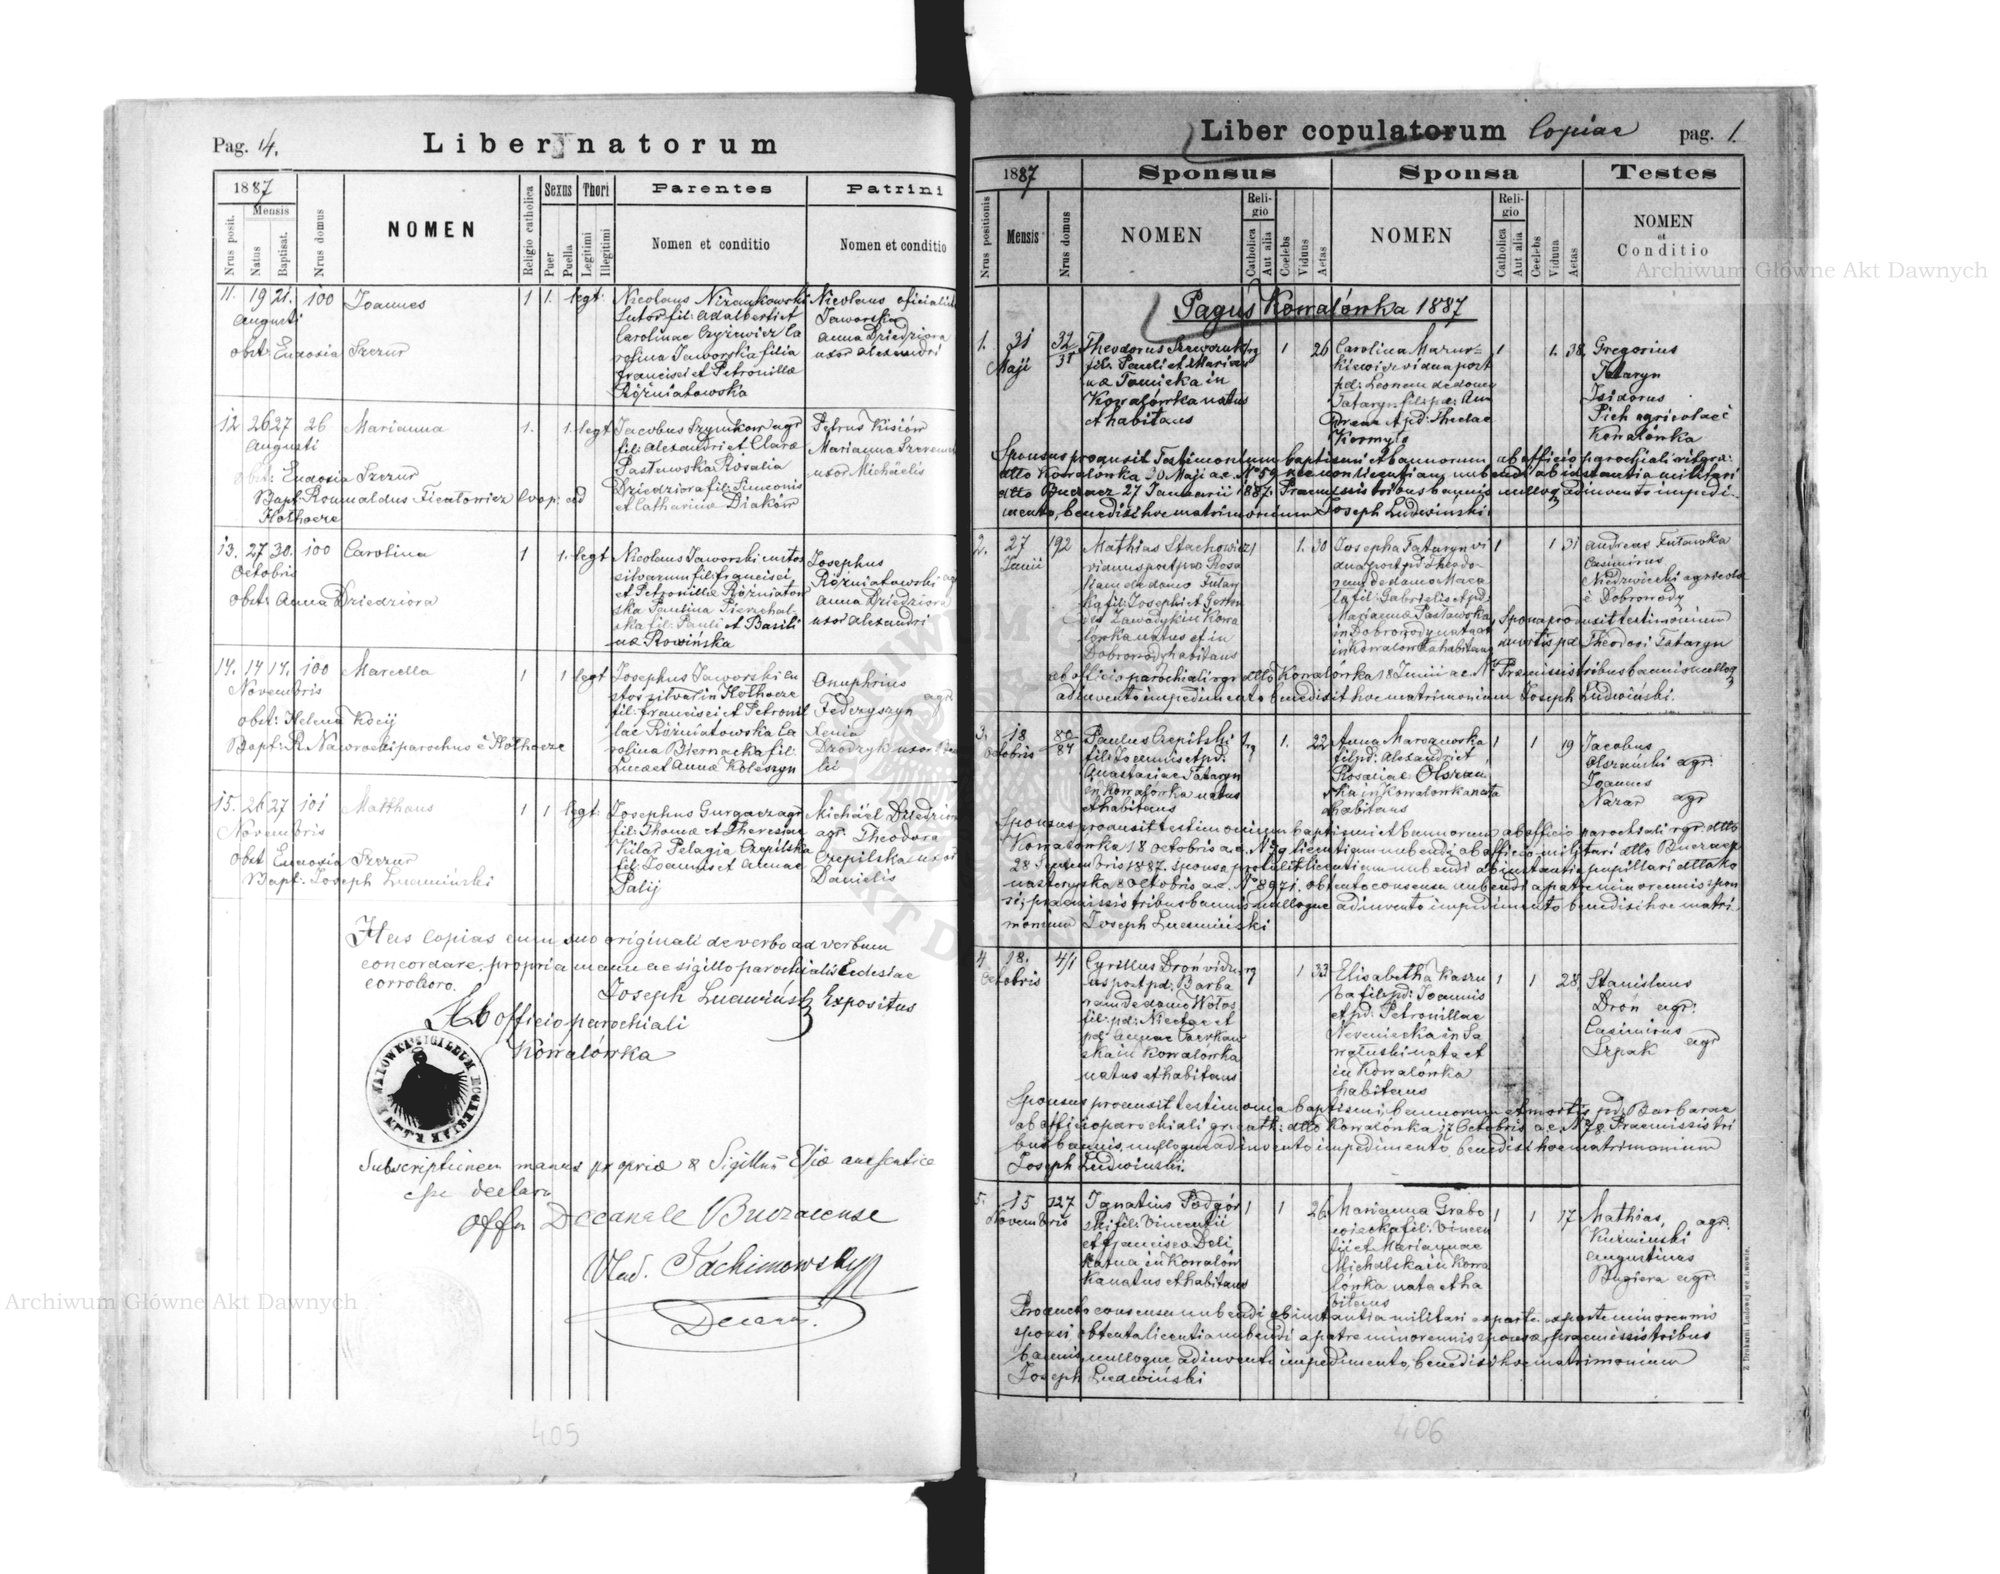 Pag. 14.
Liber natorum
1887
Nrus posit.
Mensis
Natus
Baptisat.
Nrus domus
NOMEN
Religio catholica
Sexus
Puer
Puella
Thori
Legitimi
Illegitimi
Parentes
Nomen et conditio
Patrini
Nomen et conditio
11. 19 21. 100 Joannes 1 1. legt:
Augusti
obst: Eudosia Szczur
Nicolaus Niżankowski
sutor fil: Adalberti et
Carolinae Czyżewicz Ca
rolina Jaworska filia
Francisci et Petronillae
Różniatowska
Nicolaus
Jaworski
Anna Dziedziora
uxor Alexandri
12 26 27 26 Marianna 1. 1. legt
Augusti
obst: Eudosia Szczur
Bapt: Romualdus Ficałowicz Coop. ad
Hołhocze
Jacobus Szymków agr
fil: Alexandri et Clarae
Pasławska Rosalia
Dziedziora fil: Simeonis
et Catharinae Diaków
Petrus Kisiów
Marianna
uxor Michaelis
13. 27 30. 100 Carolina 1 1. legt
Octobris
obst: Anna Dziedziora
Nicolaus Jaworski custos
silvarum fil: Francisci
et Petronillae Różniatow
ska Paulina
fil: Pauli et Basili
nae Rowińska
Josephus
Różniatowski agr
Anna Dziedziora
uxor Alexandri
14. 14 17. 100 Marcella 1 1 legt
Novembris
obst: Helena Kocij
Bapt: R. Nawrocki parochus e Hołhocze
Josephus Jaworski cu
stos silvar in Hołhocze
fil: Francisci et Petronil
lae Różniatowska Ca
rolina Biernacka fil:
Lucae et Annae Koleszyn
Onuphrius agr
Federyszyn
Xenia
uxor
15. 26 27 101 Matthaus 1 1 legt:
Novembris
obst Eudosia Szczur
Bapt: Joseph Ludwiński
Josephus Gurgacz agr
fil: Thomae et Theresiae
Kilar Pelagia Czepilska
fil: Joannis et Annae
Palij
Michäel
agr: Theodora
Czepilska uxor
Danielis
Has copias cum suo originali de verbo ad verbum
concordare, propria manu ac sigillo parochialis Ecclesiae
corroboro.
Joseph Ludwiński Expositus
Ab officio parochiali
Kowalówka
Subscriptionem manus propriae & Sigillum Eccliae authentica
esse declaro
Offm Decanale Buczacense
Vlad. Jachimowski
Decan.
405
Liber copulatorum Copiae pag. 1.
1887
Nrus positionis
Mensis
Nrus domus
Sponsus
NOMEN
Religio
Catholica
Aut alia
Coelebs
Viduus
Aetas
Sponsa
NOMEN
Religio
Catholica
Aut alia
Coelebs
Vidua
Aetas
Testes
NOMEN
et
Conditio
Pagus Kowalówka 1887
1. 31 Maji
Theodorus
fil: Pauli et Marian
nae Tomicka in
Kowalówka natus
et habitans
1 26
Carolina Mazur-
kiewicz vidua post
pd: Leonem de domo
Tataryn fil: pd: An
dreae et pd: Theclae
Kormyło
1 1. 38
Gregorius
Tataryn
Isidorus
Pich agricolae e
Kowalówka
Sponsus produxit Testimonium baptismi et bannorum ab officio parochiali rit: gr:
dtto Kowalówka 30 Maji a.c. No 59 nec non licentiam nubendi ab instantia militari
dtto Buczacz 27 Januarii 1887. Praemissis tribus bannis nulloq adinvento impedi-
mento, benedixi hoc matrimonium Joseph Ludwinski.
2. 27 Junii 192
Mathias Stachowicz
viduus post pd: Rosa
liam de domo
fil: Josephi et
Zawadyk in Kowa
lówka natus et in
Dobrowody habitans
1. 30
Josepha Tataryn vi
dua post pd Theodo
rum de domo
fil: Gabrielis et pd:
Mariannae Pasławska
in Dobrowody nata et
in Kowalówka habitans
1 1 31
Andreas
Casimirus
Niedzwiecki agricolae
e Dobrowody
Sponsa produxit testimonium
mortis pd: Theodori Tataryn
ab officio parochiali rgr: dtto Kowalówka 18 Junii a.c No Praemissis tribus bannis nulloq
adinvento impedimento benedixi hoc matrimonium Joseph Ludwiński.
3. 18 Octobris
Paulus Czepilski
fil: Joannis et pd:
Anastaciae Tataryn
in Kowalówka natus
et habitans
1. 22
Anna
fil: pd: Alexandri et
Rosaliae Olszań
ska in Kowalówka nata
et habitans
1 1 19
Jacobus
Olszański agr:
Joannes
Nazar agr
Sponsus produxit testimonium baptismi et bannorum ab officio parochiali rgr. dtto
Kowalówka 18 Octobris a.c. No 79 licentiam nubendi ab officio militari dtto Buczacz
28 Septembris 1887. sponsa protulit licentiam nubendi ab instantia pupillari dtta Mo
nasterzyska 8 Octobris a.c. No 8971. obtento consensu nubendi a patre minorennis spon
si, praemissis tribus bannis nulloque adinvento impedimento benedixi hoc matri
monium Joseph Ludwiński
4 18. Octobris 41
Cyrillus Droń vidu
us post pd: Barba
ram de domo Wołos
fil: pd: Nicetae et
pd: Agnae
ska in Kowalówka
natus et habitans
1 33
Elisabetha Kaszu
ba fil: pd: Joannis
et pd: Petronillae
in
nata et
in Kowalówka
habitans
1 1 28
Stanislaus
Droń agr:
Casimirus
Szpak agr
Sponsus produxit testimonia baptismi, bannorum et mortis pd: Barbarae
ab officio parochiali gr: cath: dtto Kowalówka 17 Octobris a.c. No 78. Praemissis tri
bus bannis, nulloque adinvento impedimento benedixi hoc matrimonium
Joseph Ludwinski.
5. 15 Novembris 127
Ignatius Podgór
ski fil: Vincentii
et Francisca Deli
katna in Kowalów
ka natus et habitans
1 1 26
Marianna Grabo
wiecka fil: Vincen
tii et Mariannae
Michalska in Kowa
lówka nata et ha
bitans
1 1 17
Mathias, agr:
Kuźminski
Augustinus
Bugiera agr:
Producto consensu nubendi ab instantia militari ex parte ex parte minorennis
sponsi obtenta licentia nubendi a patre minorennis sponsae, praemissis tribus
bannis, nulloque adinvento impedimento, benedixi hoc matrimonium
Joseph Ludwiński
Z Drukarni Ludowej we Lwowie.
406
Archiwum Główne Akt Dawnych
Archiwum Główne Akt Dawnych